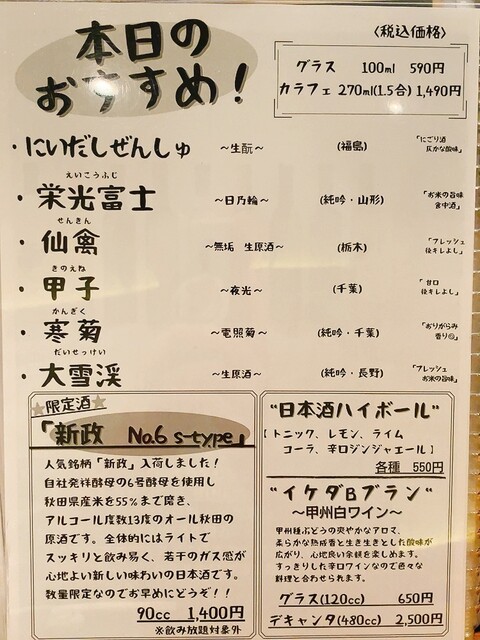 本日の
おすすめ!
〈税込価格〉
グラス 100ml 590円
カラフェ 270ml(1.5合) 1,490円
・にいだしぜんしゅ ～生酛～ (福島) 「にごり酒 仄かな酸味」
えいこうふじ
・栄光富士 ～日乃輪～ (純吟・山形) 「お米の旨味 食中酒」
せんきん
・仙禽 ～無垢 生原酒～ (栃木) 「フレッシュ 後キレよし」
きのえね
・甲子 ～夜光～ (千葉) 「甘口 後キレよし」
かんぎく
・寒菊 ～電照菊～ (純吟・千葉) 「おりがらみ 香り◎」
だいせっけい
・大雪渓 ～生原酒～ (純吟・長野) 「フレッシュ お米の旨味」
限定酒
「新政 No.6 s-type」
人気銘柄「新政」入荷しました!
自社発祥酵母の6号酵母を使用し
秋田県産米を55%まで磨き、
アルコール度数13度のオール秋田の
原酒です。全体的にはライトで
スッキリと飲み易く、若干のガス感が
心地よい新しい味わいの日本酒です。
数量限定なのでお早めにどうぞ!!
90cc 1,400円
※飲み放題対象外
"日本酒ハイボール"
【トニック、レモン、ライム
コーラ、辛口ジンジャエール】
各種 550円
"イケダBブラン"
～甲州白ワイン～
甲州種ぶどうの爽やかなアロマ、
柔らかな熟成香と生き生きとした酸味が
広がり、心地良い余韻を楽しめます。
すっきりした辛口ワインなので色々な
料理と合わせられます。
グラス(120cc) 650円
デキャンタ(480cc) 2,500円